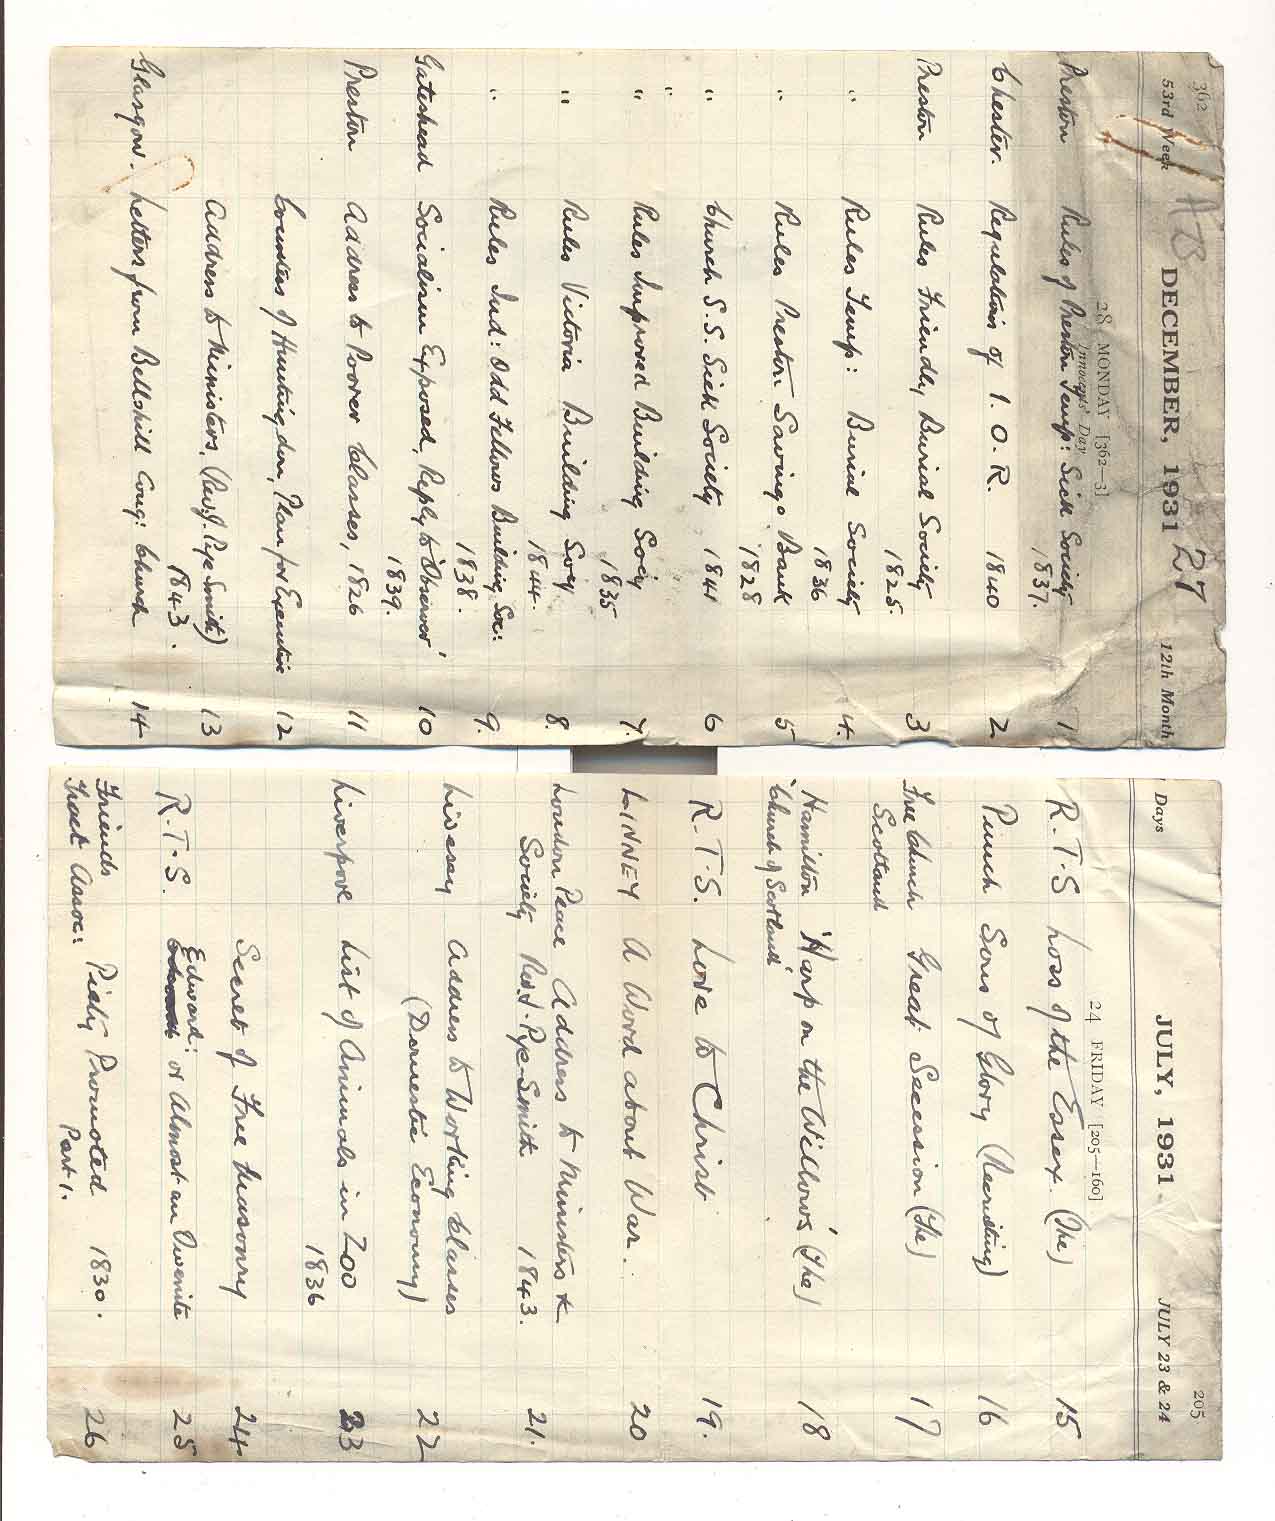 362
53rd Week AB DECEMBER, 1931 27 12th Month
28 MONDAY [362—3]
Innocents' Day
Preston Rules of Preston Temp: Sick Society 1
1837.
Chester. Regulations of I. O. R. 1840 2
Preston Rules Friendly Burial Society 3
1825.
" Rules Temp: Burial Society 4.
1836
" Rules Preston Savings Bank 5
1828
" Church S.S. Sick Society 1841 6
"
" Rules Improved Building Socy 7.
1835
" Rules Victoria Building Socy 8.
1844.
" Rules Ind: Odd Fellows Building Soc: 9.
1838.
Gateshead Socialism Exposed, Reply to 'Observer' 10
1839.
Preston Address to Poorer Classes, 1826 11
Countess of Huntingdon, Plan for Executive 12
Address to Ministers, (Rev. J. Pye Smith) 13
1843.
Glasgow. Letters from Bellshill Cong: Church 14
205
Days JULY, 1931 JULY 23 & 24
24 FRIDAY [205—160]
R.T.S Loss of the Essex. (The) 15
Punch Sons of Glory (Recruiting) 16
Free Church Great Secession (The) 17
Scotland
Hamilton 'Harp on the Willows' (The) 18
'Church of Scotland'
R.T.S. Love to Christ 19.
LINNEY A Word about War. 20
London Peace Address to Ministers &
Society Rev. J. Pye-Smith 1843. 21.
Livesey Address to Working Classes
(Domestic Economy) 22
Liverpool List of Animals in Zoo 23
1836
Secret of Free Masonry 24
Edward:
R.T.S. or Almost an Owenite 25
Friends
Tract Assoc: Piety Promoted 1830. 26
Part 1.